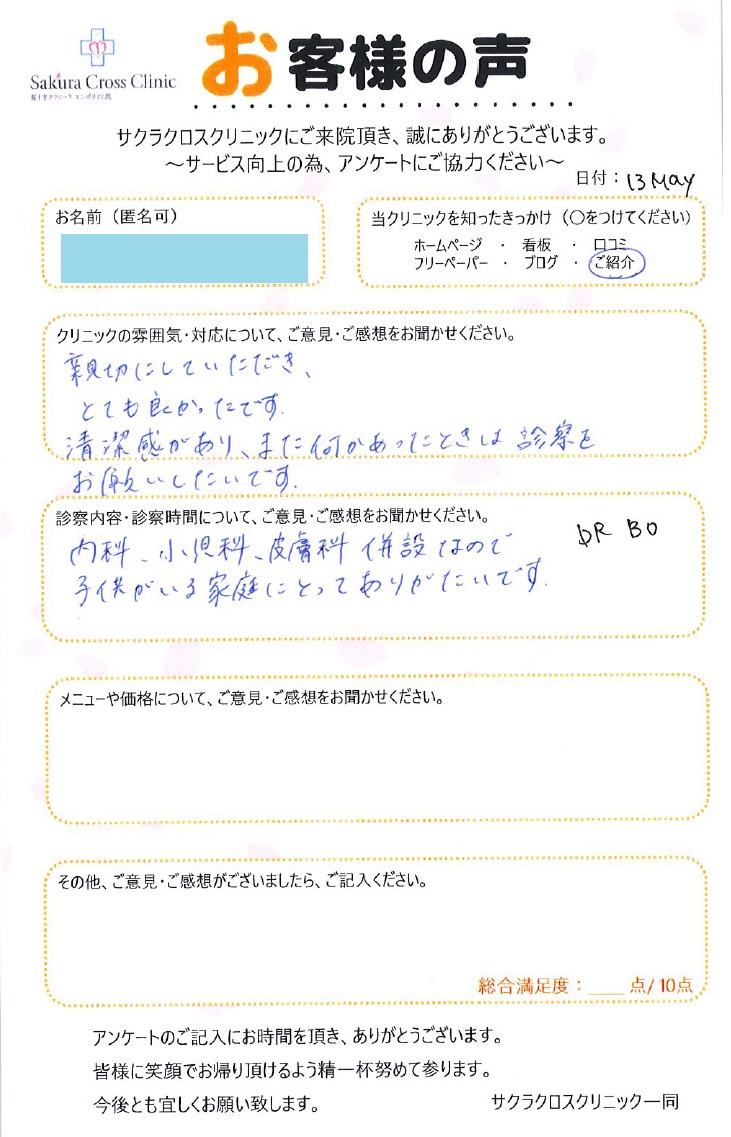 Sakura Cross Clinic
お客様の声
サクラクロスクリニックにご来院頂き、誠にありがとうございます。
～サービス向上の為、アンケートにご協力ください～
日付：13 May
お名前（匿名可）
当クリニックを知ったきっかけ（〇をつけてください）
ホームページ ・ 看板 ・ 口コミ
フリーペーパー ・ ブログ ・ ご紹介
クリニックの雰囲気・対応について、ご意見・ご感想をお聞かせください。
親切にしていただき、
とても良かったです.
清潔感があり、また何かあったときは 診察を
お願いしたいです.
診察内容・診察時間について、ご意見・ご感想をお聞かせください。
DR BO
内科、小児科、皮膚科 併設なので
子供がいる家庭にとってありがたいです.
メニューや価格について、ご意見・ご感想をお聞かせください。
その他、ご意見・ご感想がございましたら、ご記入ください。
総合満足度：____点/10点
アンケートのご記入にお時間を頂き、ありがとうございます。
皆様に笑顔でお帰り頂けるよう精一杯努めて参ります。
今後とも宜しくお願い致します。
サクラクロスクリニック一同